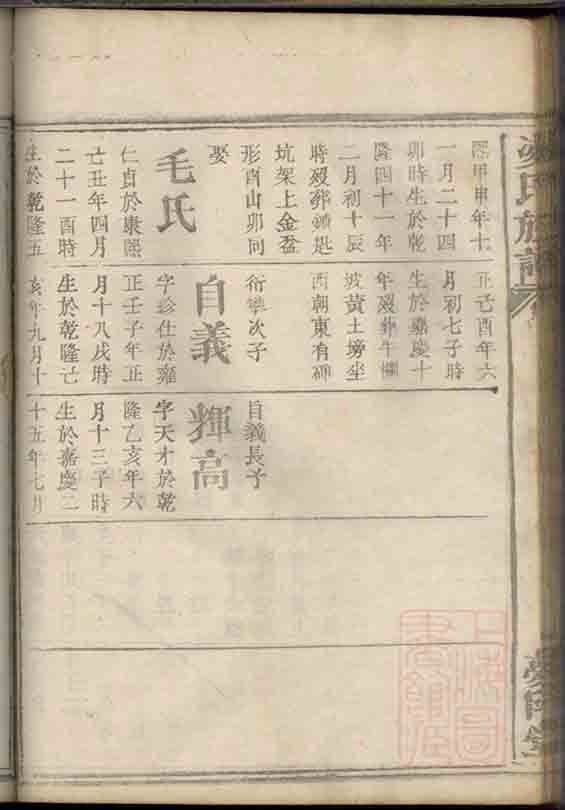 氏族譜
熙甲申年十
一月二十四
卯時生於乾
隆四十一年
二月初十辰
時歿葬鎮是
坑架上金盆
形酉山卯向
娶
毛氏
仁貞於康熙
己丑年四月
二十一酉時
生於乾隆五
正己酉年六
月初七子時
生於嘉慶十
年歿葬牛欄
坡黃土塝坐
西朝東有碑
衍 次子
自義
字珍仕於雍
正壬子年正
月十八戌時
生於乾隆己
亥年九月十
自義長子
輝高
字天才於乾
隆乙亥年六
月十三子時
生於嘉慶二
十五年七月
上海圖
書館藏